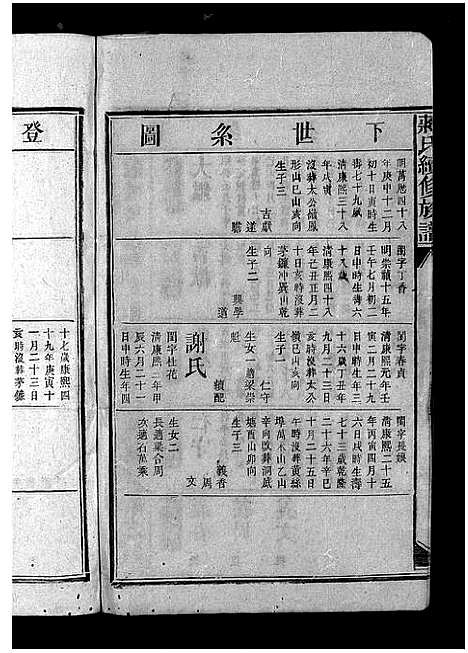 蔣氏續修族譜
下世系圖
明萬懸四十八
年庚申十二月
初十日寅時生
壽七十九歲
清康熙三十八
年戊寅
沒葬太公嶺鳳
形山巳山亥向
生子三
吉獻
道
聰
閨字丁香
明崇禎十五年
壬午七月初二
日申時生壽六
十八歲
清康熙四十八
年己丑正月二
十日亥時沒葬
茅鐮冲巽山乾
向
生子二
興學
道
閨字春貞
清康熙元年壬
寅二月二十九
日申時生壽三
十六歲丁丑年
九月二十三日
亥時沒葬太公
嶺巳山亥向
生子一
仁守
生女一適梁崇
魁
續配
謝氏
閨字桂花
清康熙三年甲
辰六月二十一
日申時生年四
閨字長媖
清康熙二十五
年丙寅四月十
六日戌時生壽
七十三歲乾隆
二十六年辛巳
十月二十五日
午時沒葬黃絲
埠萬木山乙山
辛向改葬洞底
塘酉山卯向
生子三
義香
周
文
生女二
長適梁合周
次適石華乘
登
十七歲康熙四
十九年庚寅十
一月二十三日
亥時沒葬茅鐮